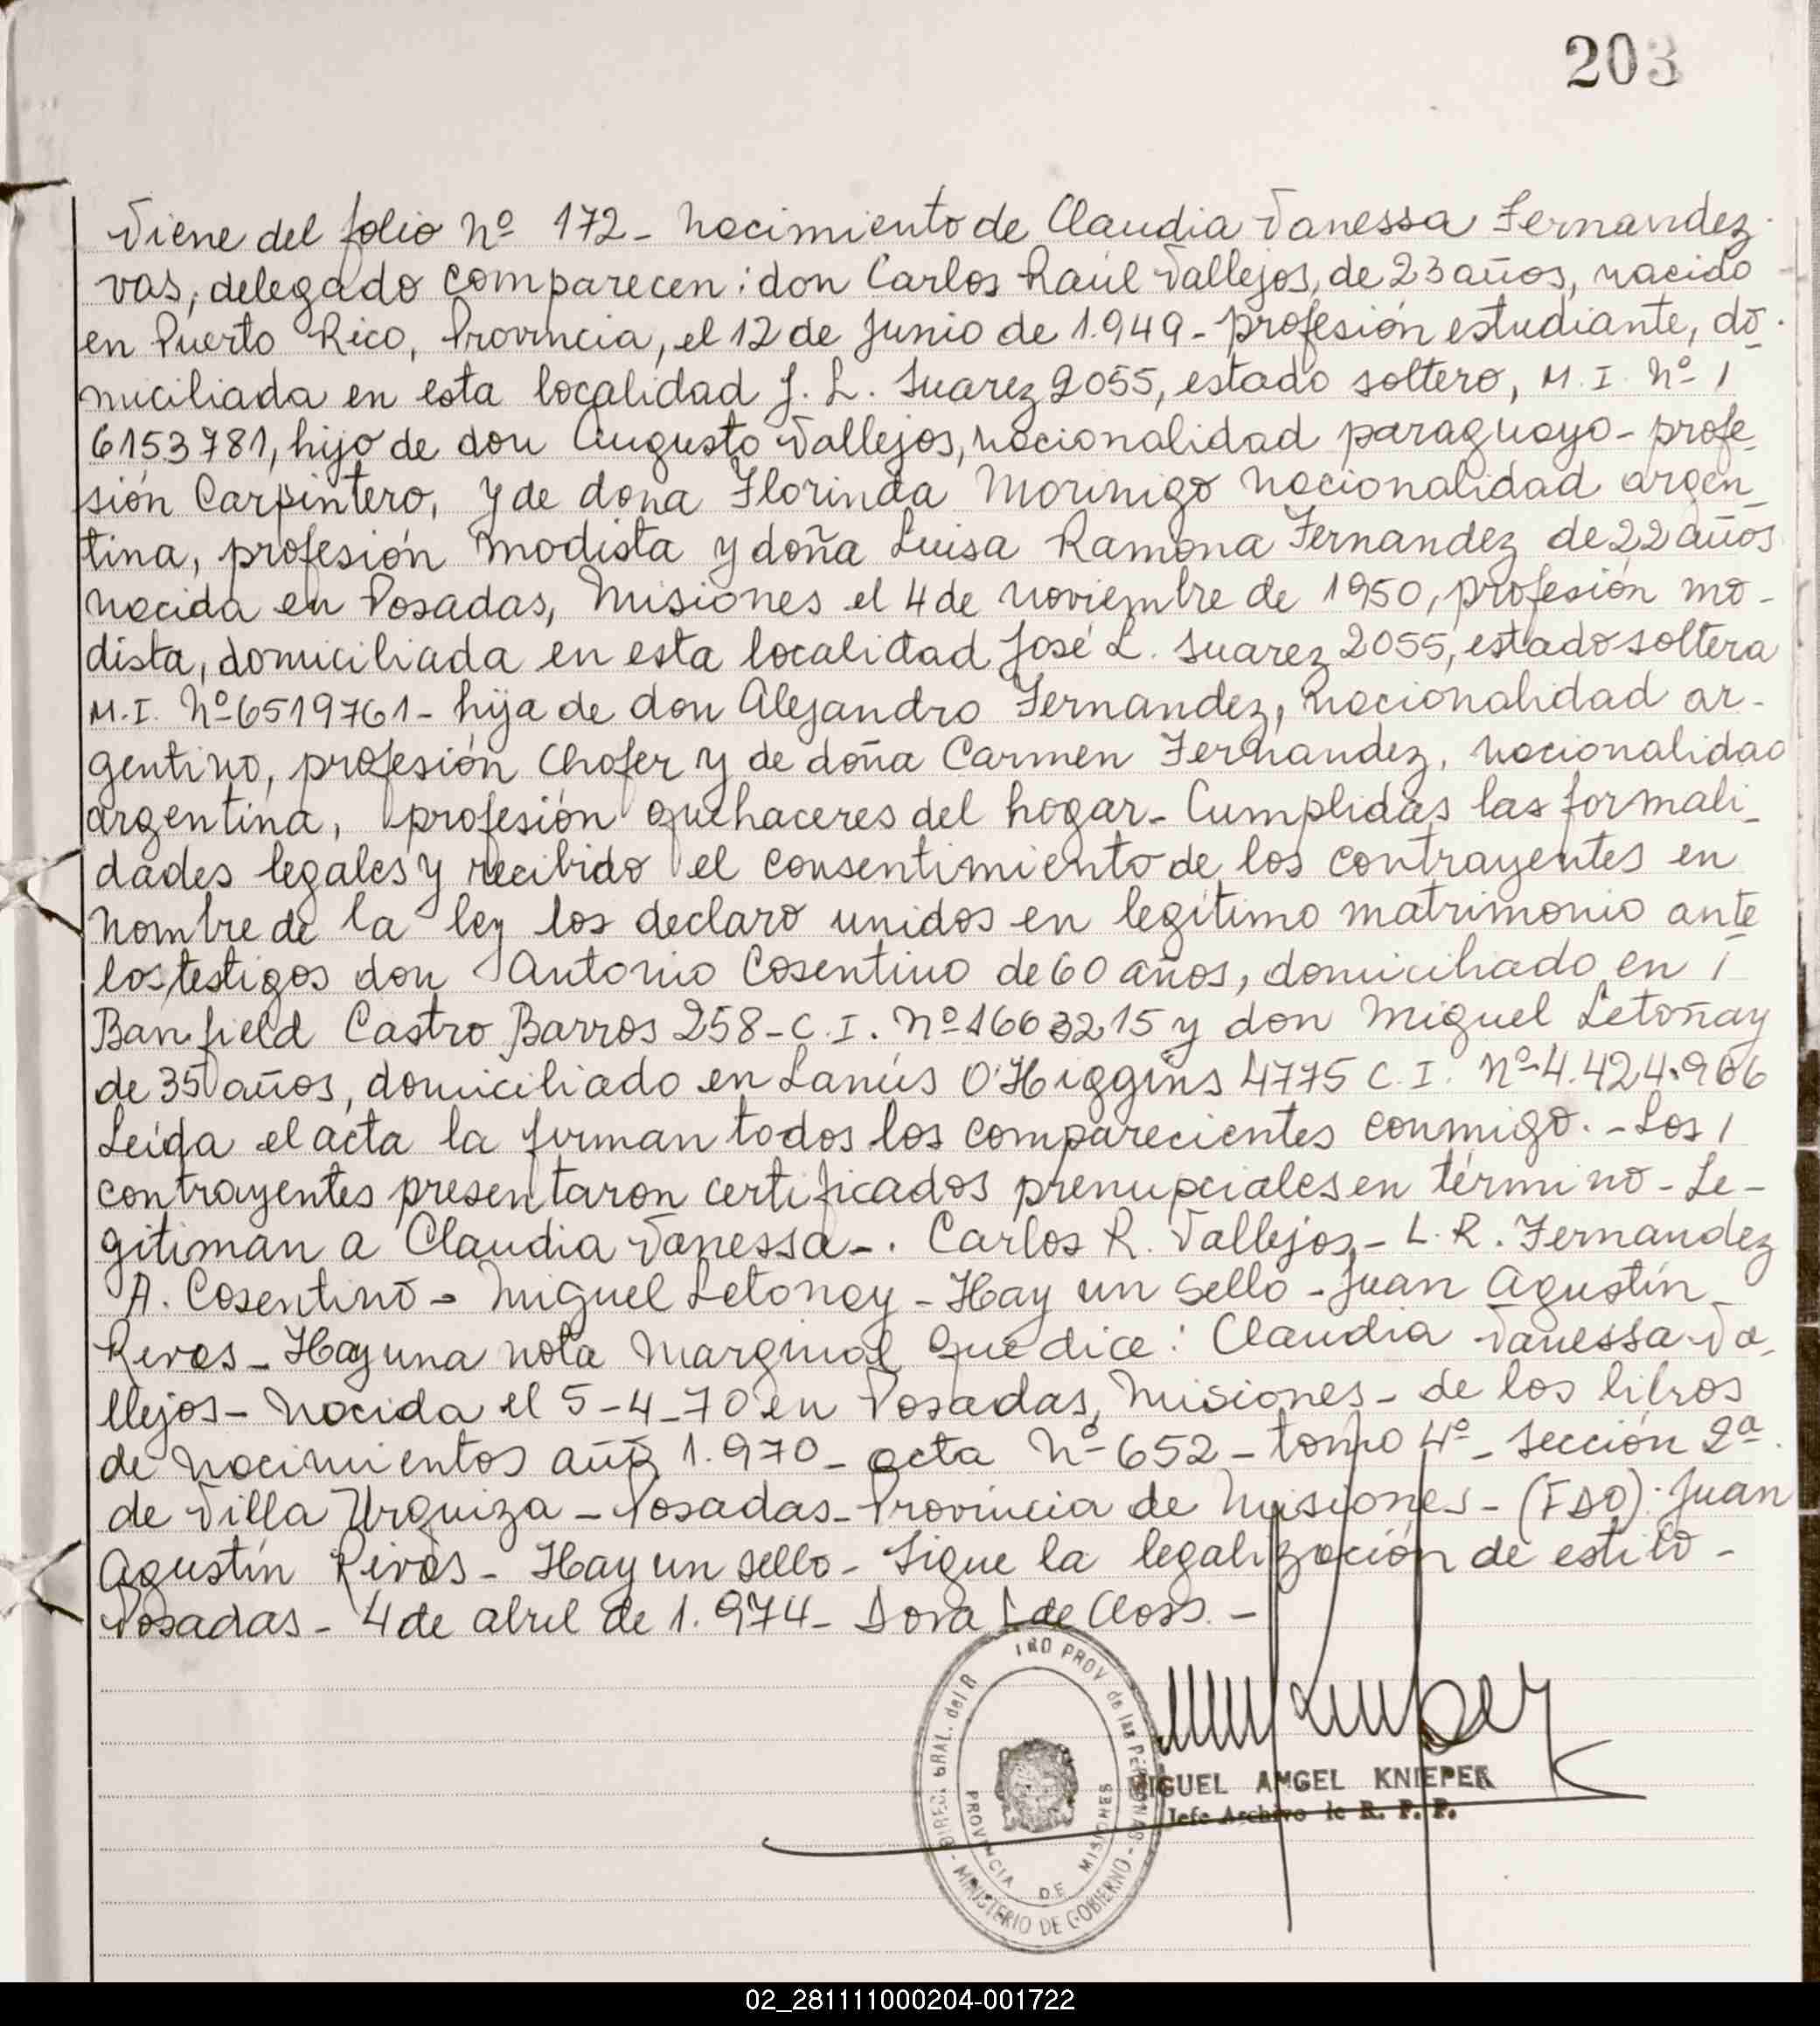 203
Viene del folio Nº 172- Nacimiento de Claudia Vanessa Fernandez.
vas, delegado comparecen: don Carlos Raúl Vallejos, de 23 años, nacido
en Puerto Rico, Provincia, el 12 de Junio de 1.949- profesión estudiante, do-
miciliada en esta localidad J. L. Suarez 2055, estado soltero, M. I. Nº
6153781, hijo de don Augusto Vallejos, nacionalidad paraguayo- profe-
sión Carpintero, y de dona Florinda Morinigo nacionalidad argen-
tina, profesión modista y doña Luisa Ramona Fernandez de 22 años
nacida en Posadas, Misiones el 4 de noviembre de 1950, profesión mo-
dista, domiciliada en esta localidad José L. Suarez 2055, estado soltera
M.I. Nº 6519761- hija de don Alejandro Fernandez, nacionalidad ar-
gentino, profesión Chofer y de doña Carmen Fernandez, nacionalidad
argentina, profesión quehaceres del hogar- Cumplidas las formali-
dades legales y recibido el consentimiento de los contrayentes en
nombre de la ley los declaro unidos en legítimo matrimonio ante
los testigos don Antonio Cosentino de 60 años, domiciliado en
Banfield Castro Barros 258- C. I. Nº 1663215 y don Miguel Letoñay
de 35 años, domiciliado en Lanús O'Higgins 4775 C. I. Nº 4.424.906
Leída el acta la firman todos los comparecientes conmigo.- Los
contrayentes presentaron certificados prenupciales en término- Le-
gitiman a Claudia Vanessa-. Carlos R. Vallejos- L. R. Fernandez
A. Cosentino- Miguel Letonay- Hay un sello- Juan Agustín
Rivas- Hay una nota marginal que dice: Claudia Vanessa Va-
llejos- Nacida el 5-4-70 en Posadas, Misiones- de los libros
de nacimientos año 1.970- acta Nº 652- tomo 4º- Sección 2ª
de Villa Urquiza- Posadas- Provincia de Misiones- (FDO). Juan
Agustín Rivas- Hay un sello- Sigue la legalización de estilo-
Posadas- 4 de abril de 1.974- Dora de Closs.-
DIREC. GRAL. del R
PROV de las PERSONAS
MINISTERIO DE GOBIERNO
PROVINCIA DE MISIONES
MIGUEL ANGEL KNIEPER
Jefe Archivo de R. P. P.
02_281111000204-001722